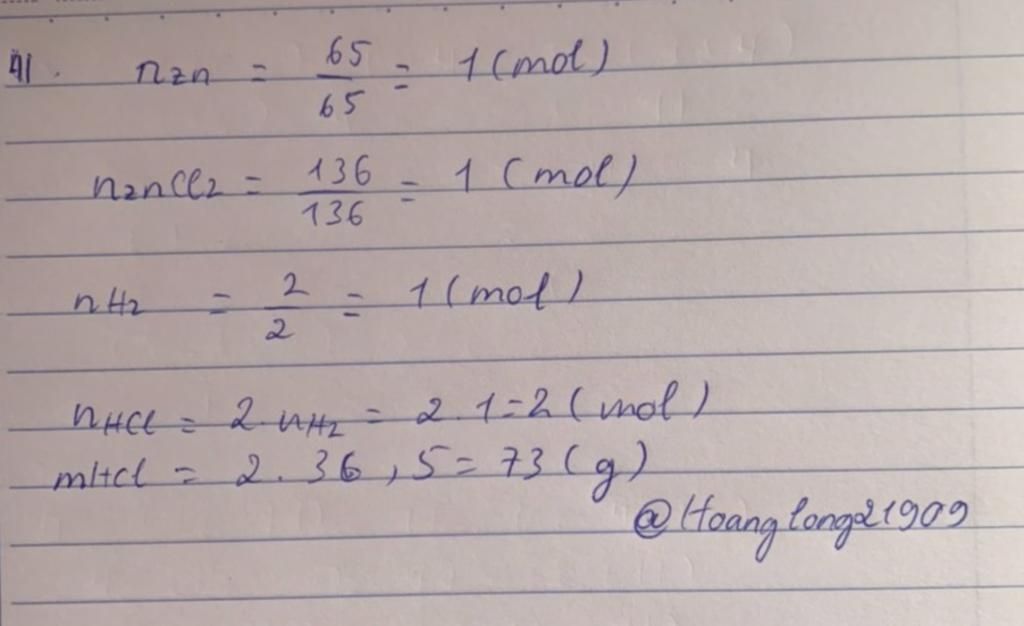 41. nZn = 65/65 = 1 (mol)
nZnCl2 = 136/136 = 1 (mol)
nH2 = 2/2 = 1 (mol)
nHCl = 2.nH2 = 2.1=2 (mol)
mHCl = 2.36,5 = 73 (g)
@Hoanglong21909